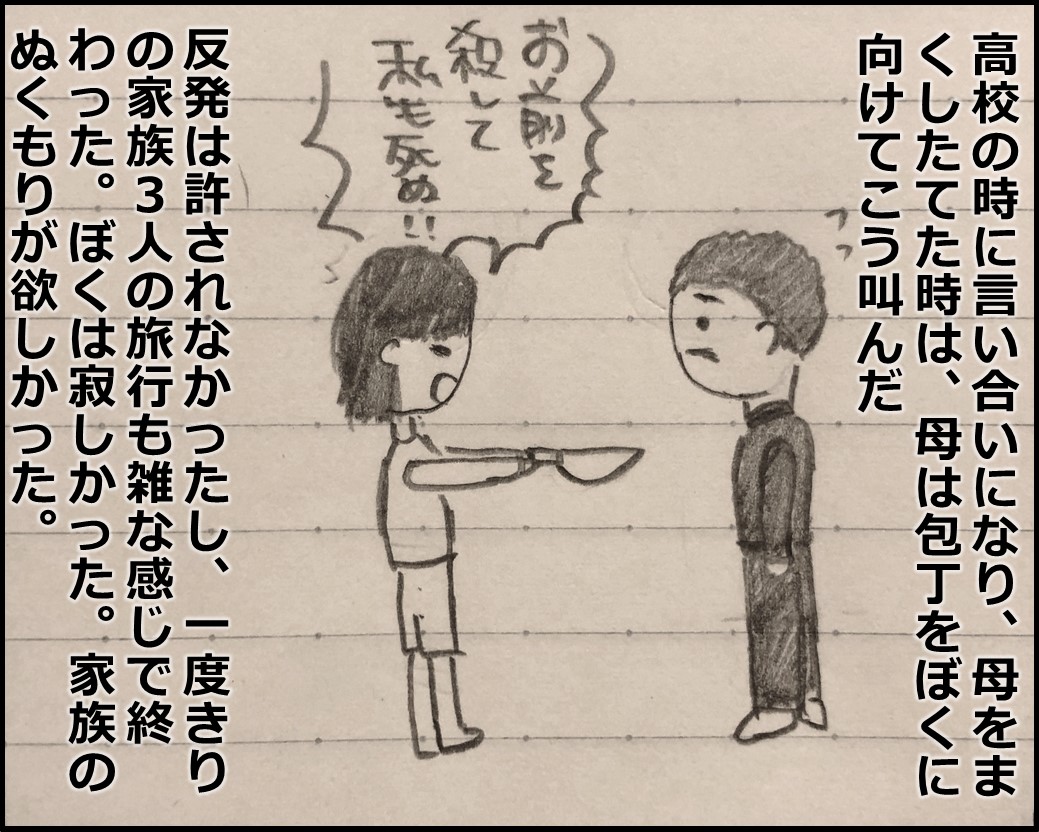 高校の時に言い合いになり、母をま
くしたてた時は、母は包丁をぼくに
向けてこう叫んだ
お前を
殺して
私も死ぬ!!
反発は許されなかったし、一度きり
の家族３人の旅行も雑な感じで終
わった。ぼくは寂しかった。家族の
ぬくもりが欲しかった。